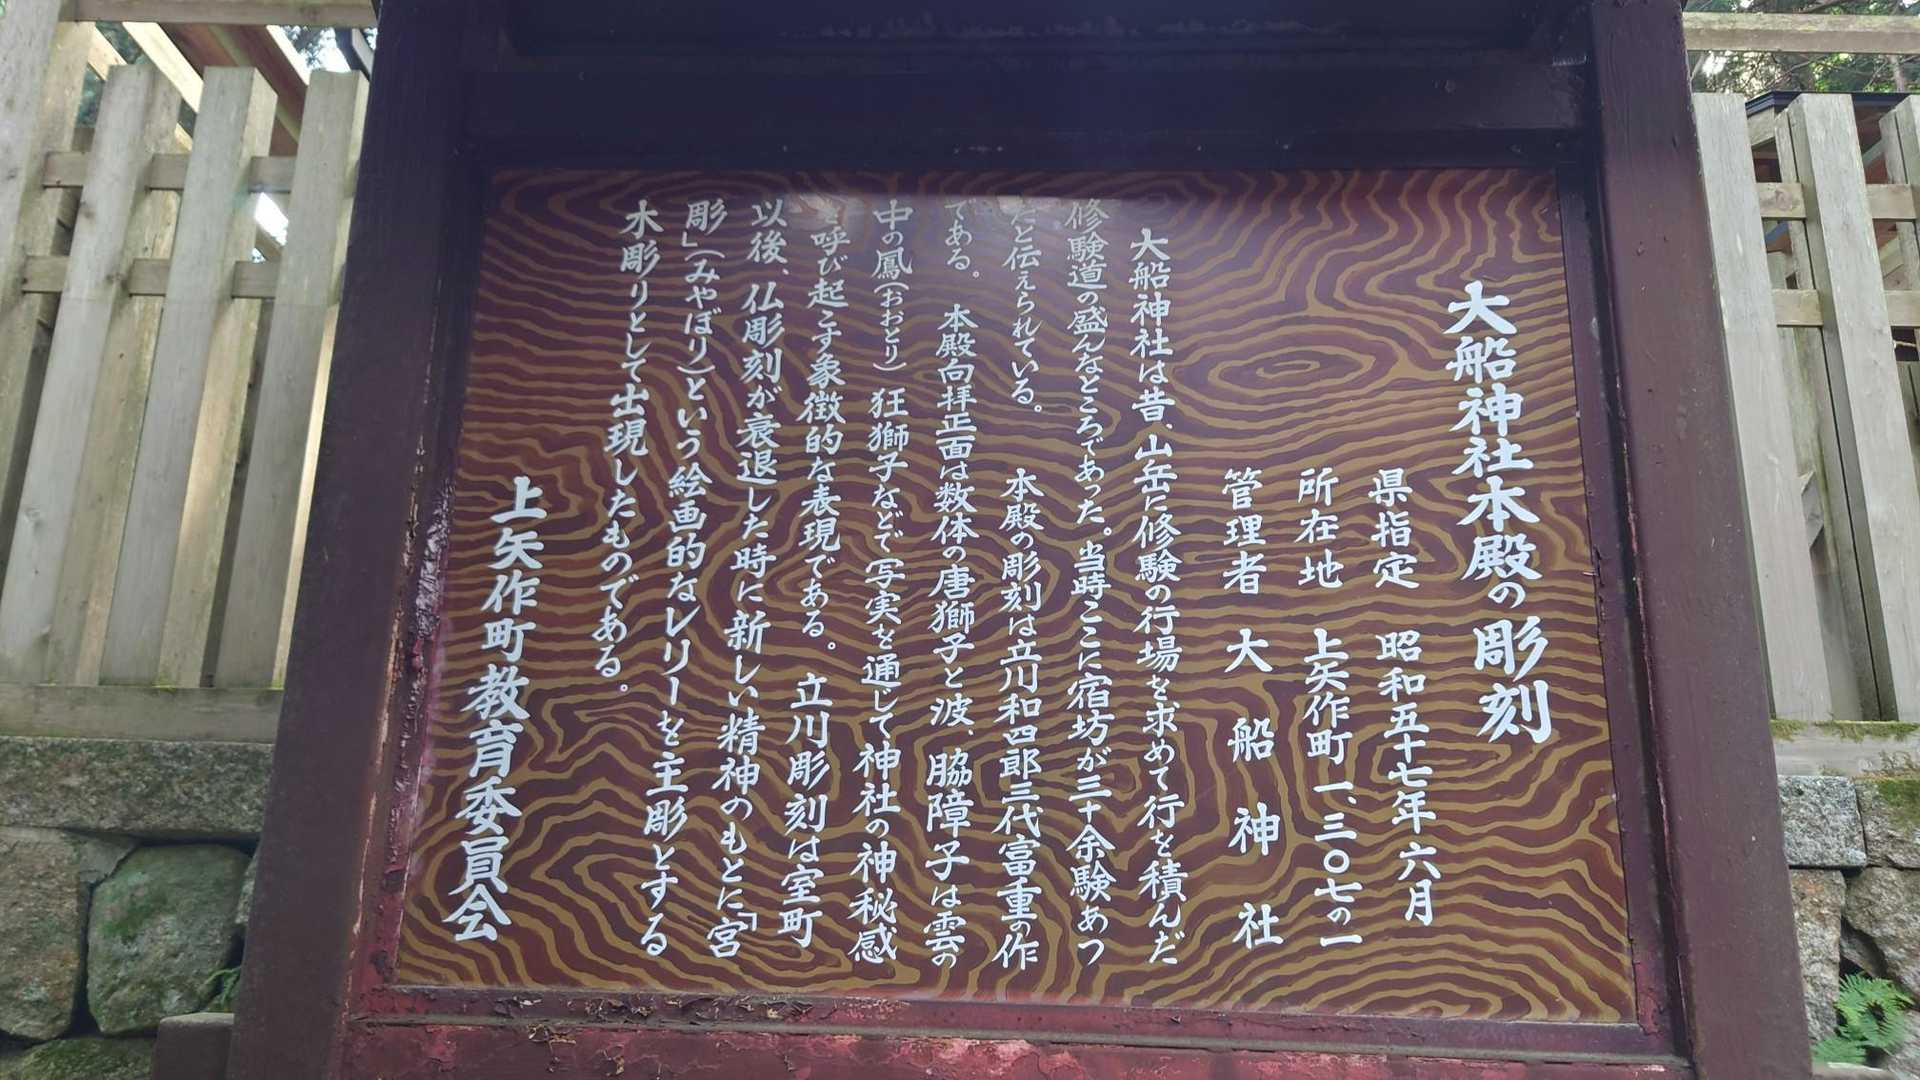 大船神社本殿の彫刻
県指定 昭和五十七年六月
所在地 上矢作町一、三〇七の一
管理者 大船神社
大船神社は昔、山岳に修験の行場を求めて行を積んだ
修験道の盛んなところであった。当時ここに宿坊が三十余験あつ
たと伝えられている。 本殿の彫刻は立川和四郎三代富重の作
である。 本殿向拝正面は数体の唐獅子と波、脇障子は雲の
中の鳳(おおとり) 狂獅子などで写実を通じて神社の神秘感
を呼び起こす象徴的な表現である。 立川彫刻は室町
以後、仏彫刻が衰退した時に新しい精神のもとに「宮
彫」(みやぼり)という絵画的なレリーを主彫とする
木彫りとして出現したものである。
上矢作町教育委員会